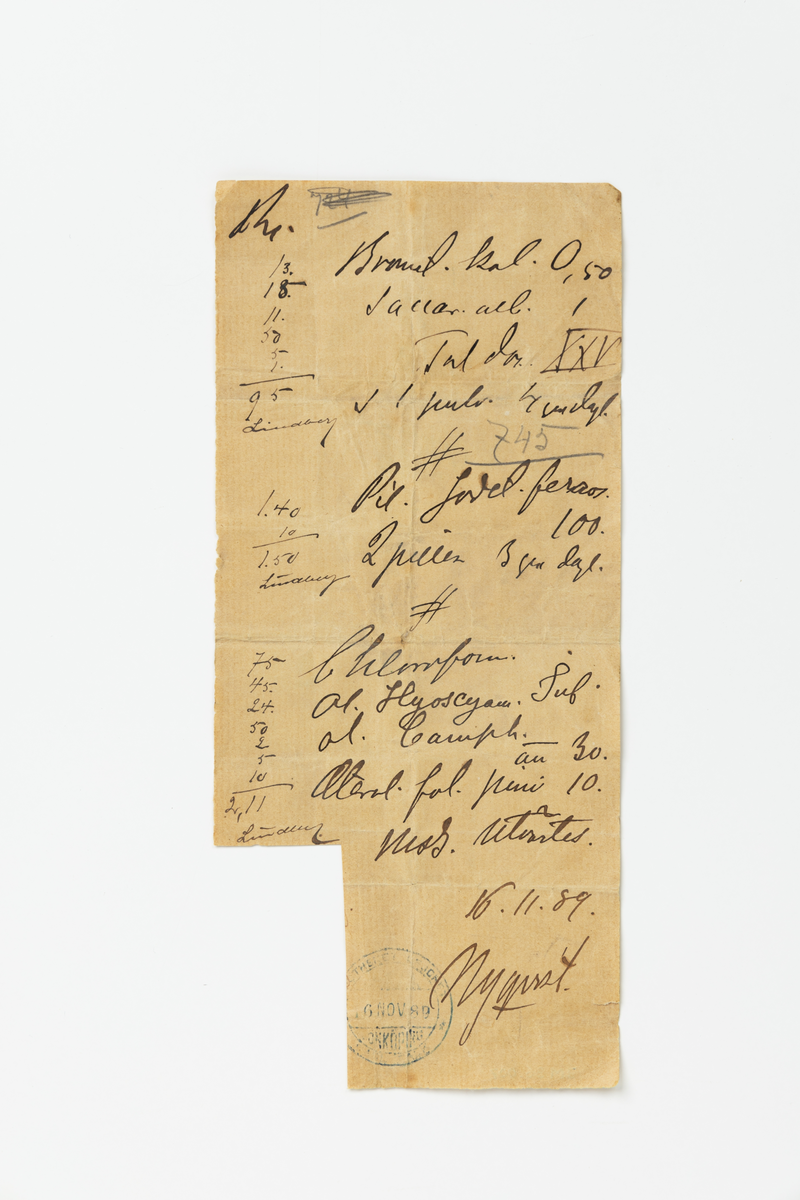 Rp.
13.
18.
11.
50
5
1.
95
Lindberg
Bromel. kal. 0,50
Saccar. alb. 1
Tal dos. XXV
S 1 pulv. 4 ggr dagl.
#
745
1.40
10
1.50
Lindberg
Pil. Jodel. ferros.
100.
2 piller 3 ggr dagl.
#
75
45.
24.
50
2
5
10
2,11
Lindberg
Chloroform.
Ol. Hyoscyam.
Ol. Camph.
āā 30.
fol. pini 10.
MDS. Utvärtes.
16.11.89.
Nyqvist.
6 NOV 89